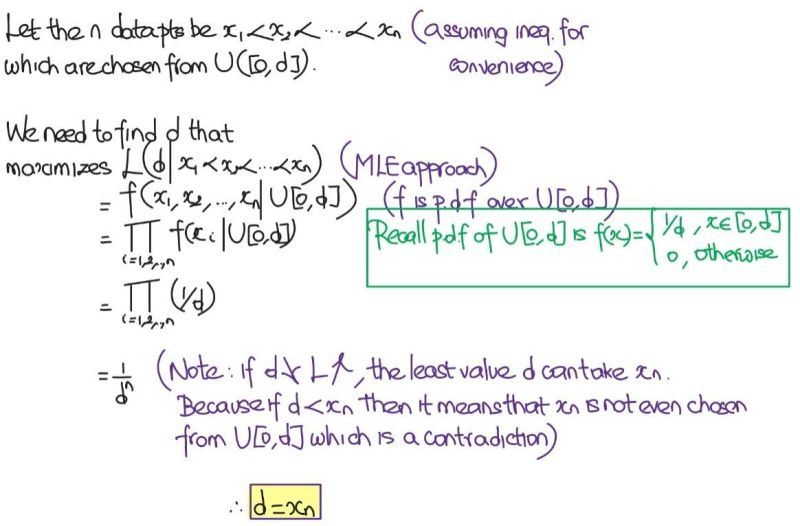 Let the n data pts be x₁<x₂<⋯<xₙ (assuming ineq. for
which are chosen from U([0,d]). convenience)
We need to find d that
maximizes L(d|x₁<x₂<⋯<xₙ) (MLE approach)
= f(x₁,x₂,...,xₙ|U[0,d]) (f is p.d.f over U[0,d])
= ∏ f(xᵢ|U[0,d])
i=1,2,..,n
Recall p.d.f of U[0,d] is f(x)={1/d, x∈[0,d]
0, otherwise
= ∏ (1/d)
i=1,2,..,n
= 1/dⁿ (Note: If d↓ L↑, the least value d can take xₙ.
Because if d<xₙ then it means that xₙ is not even chosen
from U[0,d] which is a contradiction)
∴ d=xₙ